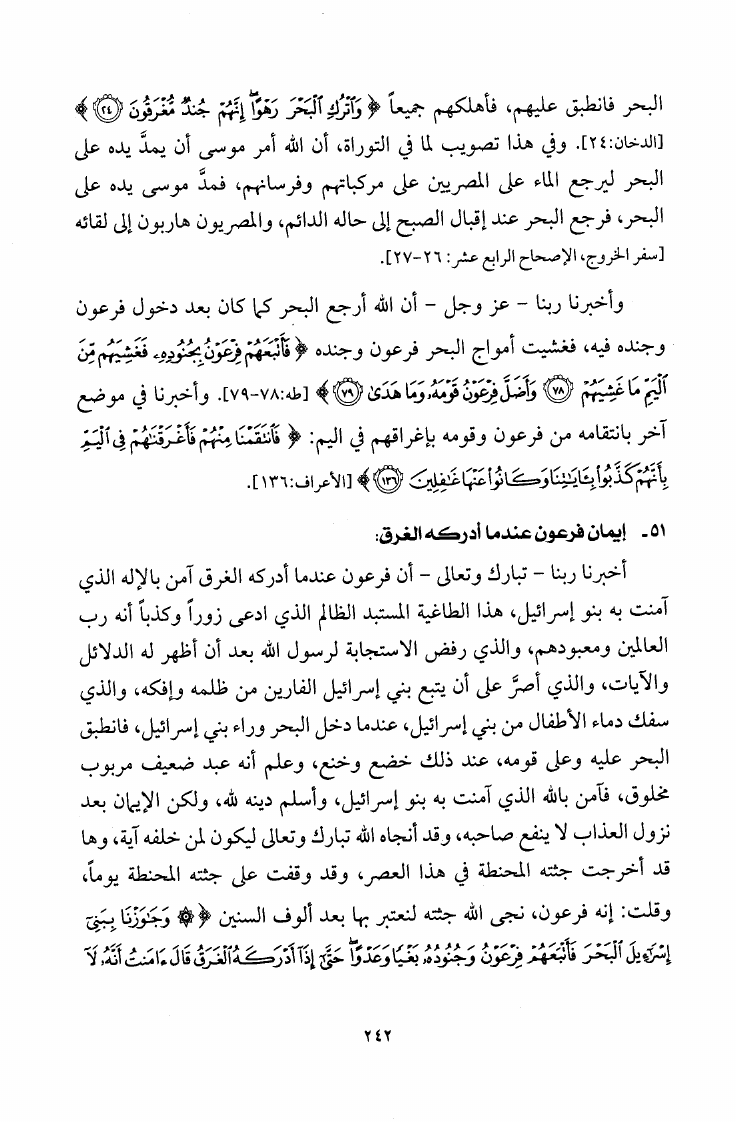 البحر فانطبق عليهم، فأهلكهم جميعاً ﴿ وَٱتْرُكِ ٱلْبَحْرَ رَهْوًا ۖ إِنَّهُمْ جُندٌ مُّغْرَقُونَ ﴿٢٤﴾ ﴾
[الدخان:٢٤]. وفي هذا تصويب لما في التوراة، أن الله أمر موسى أن يمدَّ يده على
البحر ليرجع الماء على المصريين على مركباتهم وفرسانهم، فمدَّ موسى يده على
البحر، فرجع البحر عند إقبال الصبح إلى حاله الدائم، والمصريون هاربون إلى لقائه
[سفر الخروج، الإصحاح الرابع عشر: ٢٦-٢٧].
وأخبرنا ربنا – عز وجل – أن الله أرجع البحر كما كان بعد دخول فرعون
وجنده فيه، فغشيت أمواج البحر فرعون وجنده ﴿ فَأَتْبَعَهُمْ فِرْعَوْنُ بِجُنُودِهِۦ فَغَشِيَهُم مِّنَ
ٱلْيَمِّ مَا غَشِيَهُمْ ﴿٧٨﴾ وَأَضَلَّ فِرْعَوْنُ قَوْمَهُۥ وَمَا هَدَىٰ ﴿٧٩﴾ ﴾ [طه:٧٨-٧٩]. وأخبرنا في موضع
آخر بانتقامه من فرعون وقومه بإغراقهم في اليم: ﴿ فَٱنتَقَمْنَا مِنْهُمْ فَأَغْرَقْنَٰهُمْ فِى ٱلْيَمِّ
بِأَنَّهُمْ كَذَّبُوا۟ بِـَٔايَٰتِنَا وَكَانُوا۟ عَنْهَا غَٰفِلِينَ ﴿١٣٦﴾ ﴾ [الأعراف:١٣٦].
٥١- إيمان فرعون عندما أدركه الغرق:
أخبرنا ربنا – تبارك وتعالى – أن فرعون عندما أدركه الغرق آمن بالإله الذي
آمنت به بنو إسرائيل، هذا الطاغية المستبد الظالم الذي ادعى زوراً وكذباً أنه رب
العالمين ومعبودهم، والذي رفض الاستجابة لرسول الله بعد أن أظهر له الدلائل
والآيات، والذي أصرَّ على أن يتبع بني إسرائيل الفارين من ظلمه وإفكه، والذي
سفك دماء الأطفال من بني إسرائيل، عندما دخل البحر وراء بني إسرائيل، فانطبق
البحر عليه وعلى قومه، عند ذلك خضع وخنع، وعلم أنه عبد ضعيف مربوب
مخلوق، فآمن بالله الذي آمنت به بنو إسرائيل، وأسلم دينه لله، ولكن الإيمان بعد
نزول العذاب لا ينفع صاحبه، وقد أنجاه الله تبارك وتعالى ليكون لمن خلفه آية، وها
قد أخرجت جثته المحنطة في هذا العصر، وقد وقفت على جثته المحنطة يوماً،
وقلت: إنه فرعون، نجى الله جثته لنعتبر بها بعد ألوف السنين ﴿ ۞ وَجَٰوَزْنَا بِبَنِىٓ
إِسْرَٰٓءِيلَ ٱلْبَحْرَ فَأَتْبَعَهُمْ فِرْعَوْنُ وَجُنُودُهُۥ بَغْيًا وَعَدْوًا ۖ حَتَّىٰٓ إِذَآ أَدْرَكَهُ ٱلْغَرَقُ قَالَ ءَامَنتُ أَنَّهُۥ لَآ
٢٤٢